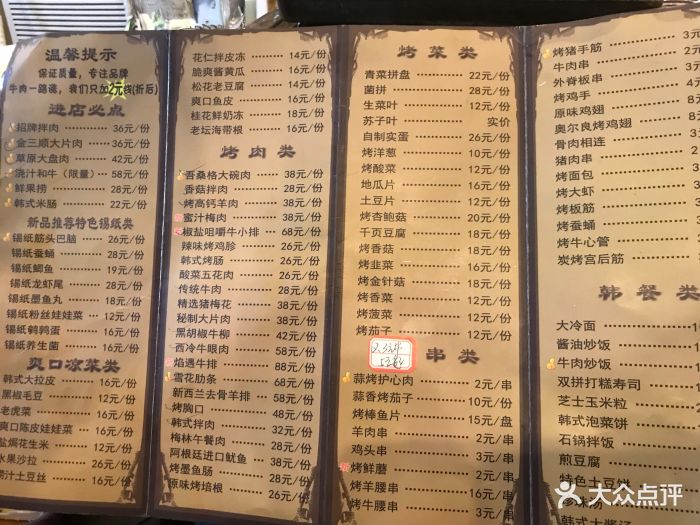 温馨提示
保证质量，专注品牌
牛肉一路涨，我们只加2元钱(折后)
进店必点
招牌拌肉 36元/份
金三顺大片肉 36元/份
草原大盘肉 42元/份
浇汁和牛（限量） 58元/份
鲜果捞 28元/份
韩式米肠 22元/份
新品推荐特色锡纸类
锡纸筋头巴脑 26元/份
锡纸蚕蛹 28元/份
锡纸鲫鱼 19元/份
锡纸龙虾尾 28元/份
锡纸墨鱼丸 18元/份
锡纸粉丝娃娃菜 16元/份
锡纸鹌鹑蛋 16元/份
锡纸养生菌 16元/份
爽口凉菜类
韩式大拉皮 16元/份
黑椒毛豆 12元/份
老虎菜 16元/份
爽口陈皮娃娃菜 16元/份
盐焗花生米 12元/份
水果沙拉 26元/份
汤汁土豆丝 16元/份
花仁拌皮冻 14元/份
脆爽酱黄瓜 16元/份
松花老豆腐 14元/份
爽口鱼皮 22元/份
桂花鲜奶冻 18元/份
老坛海带根 16元/份
烤肉类
吾桑格大碗肉 38元/份
香菇拌肉 28元/份
烤高钙羊肉 38元/份
蜜汁梅肉 38元/份
椒盐咀嚼牛小排 68元/份
辣味烤鸡胗 26元/份
韩式烤肠 26元/份
酸菜五花肉 26元/份
传统牛肉 28元/份
精选猪梅花 38元/份
秘制大片肉 38元/份
黑胡椒牛柳 42元/份
西冷牛眼肉 58元/份
焰遇牛排 88元/份
雪花肋条 68元/份
新西兰去骨羊排 58元/份
烤胸口 48元/份
韩式拌肉 32元/份
梅林午餐肉 26元/份
阿根廷进口鱿鱼 38元/份
烤墨鱼肠 26元/份
原味烤培根 26元/份
烤菜类
青菜拼盘 22元/份
菌拼 28元/份
生菜叶 12元/份
苏子叶 实价
自制实蛋 26元/份
烤洋葱 10元/份
烤酸菜 12元/份
地瓜片 16元/份
土豆片 12元/份
烤杏鲍菇 20元/份
千页豆腐 18元/份
烤香菇 18元/份
烤韭菜 16元/份
烤金针菇 18元/份
烤香菜 12元/份
烤菠菜 12元/份
烤茄子 12元/份
串类
蒜烤护心肉 2元/串
蒜香烤茄子 10元/份
烤棒鱼片 15元/盘
羊肉串 2元/串
鸡头串 3元/串
烤鲜蘑 2元/串
烤羊腰串 16元/串
烤牛腰串 3元/串
烤猪手筋 3元
牛肉串 2元
外脊板串 3元
烤鸡手
原味鸡翅 8元
奥尔良烤鸡翅
骨肉相连
猪肉串
烤面包
烤大虾
烤板筋
烤蚕蛹
烤牛心管
炭烤宫后筋
韩餐类
大冷面
酱油炒饭
牛肉炒饭
双拼打糕寿司
芝士玉米粒
韩式泡菜饼
石锅拌饭
煎豆腐
特色土豆饼
珍味汤
大众点评